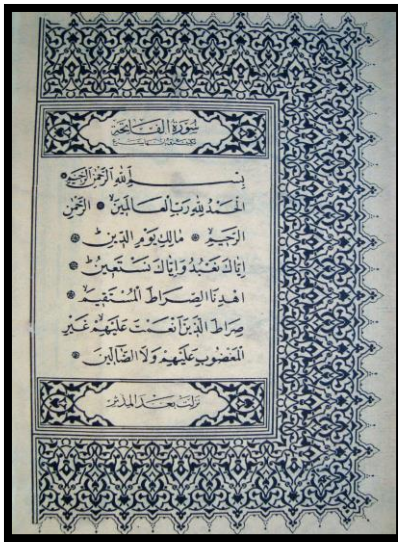 سُورَةُ الْفَاتِحَةِ
بِسْمِ اللّٰهِ الرَّحْمٰنِ الرَّحِيمِ
اَلْحَمْدُ لِلّٰهِ رَبِّ الْعَالَمِينَ ۞ اَلرَّحْمٰنِ
الرَّحِيمِ ۞ مَالِكِ يَوْمِ الدِّينِ ۞
اِيَّاكَ نَعْبُدُ وَاِيَّاكَ نَسْتَعِينُ ۞
اِهْدِنَا الصِّرَاطَ الْمُسْتَقِيمَ ۞
صِرَاطَ الَّذِينَ اَنْعَمْتَ عَلَيْهِمْ غَيْرِ
الْمَغْضُوبِ عَلَيْهِمْ وَلَا الضَّالِّينَ ۞
نزلت بعد المدثر